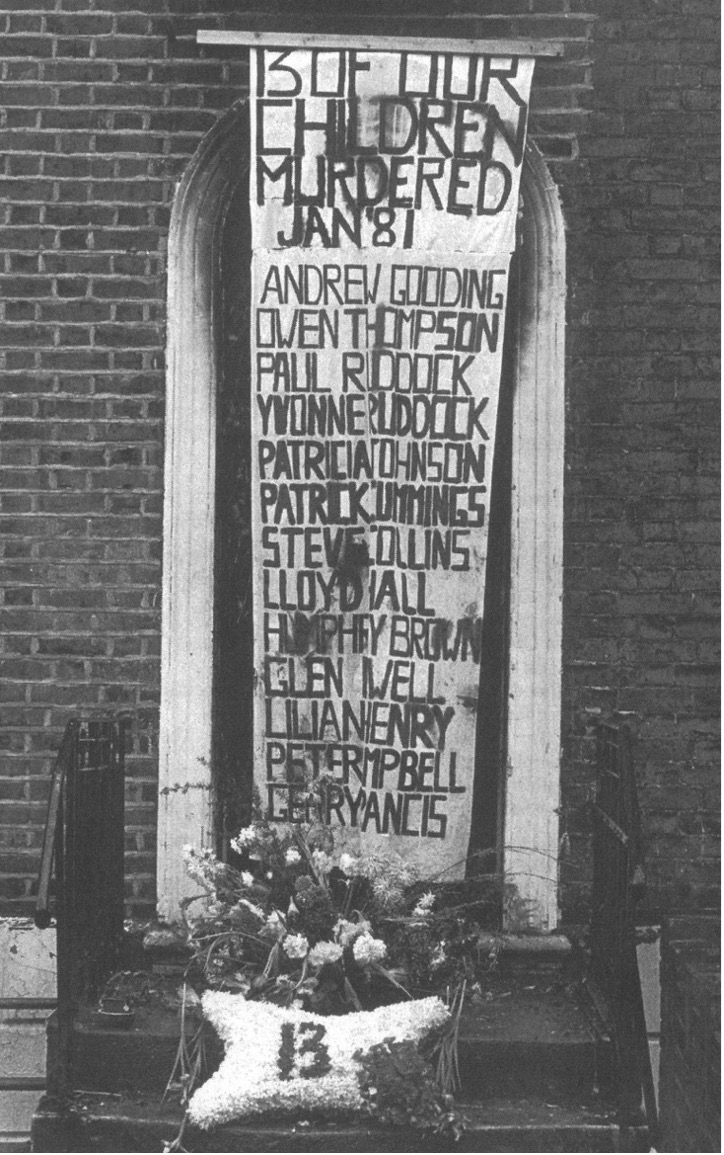 13 OF OUR
CHILDREN
MURDERED
JAN '81
ANDREW GOODING
OWEN THOMPSON
PAUL RUDDOCK
YVONNE RUDDOCK
PATRICIA JOHNSON
PATRICK CUMMINGS
STEVE COLLINS
LLOYD HALL
HUMPHEY BROWN
GLEN
LILIAN HENRY
PETER MPBELL
GERRY ANCIS
13